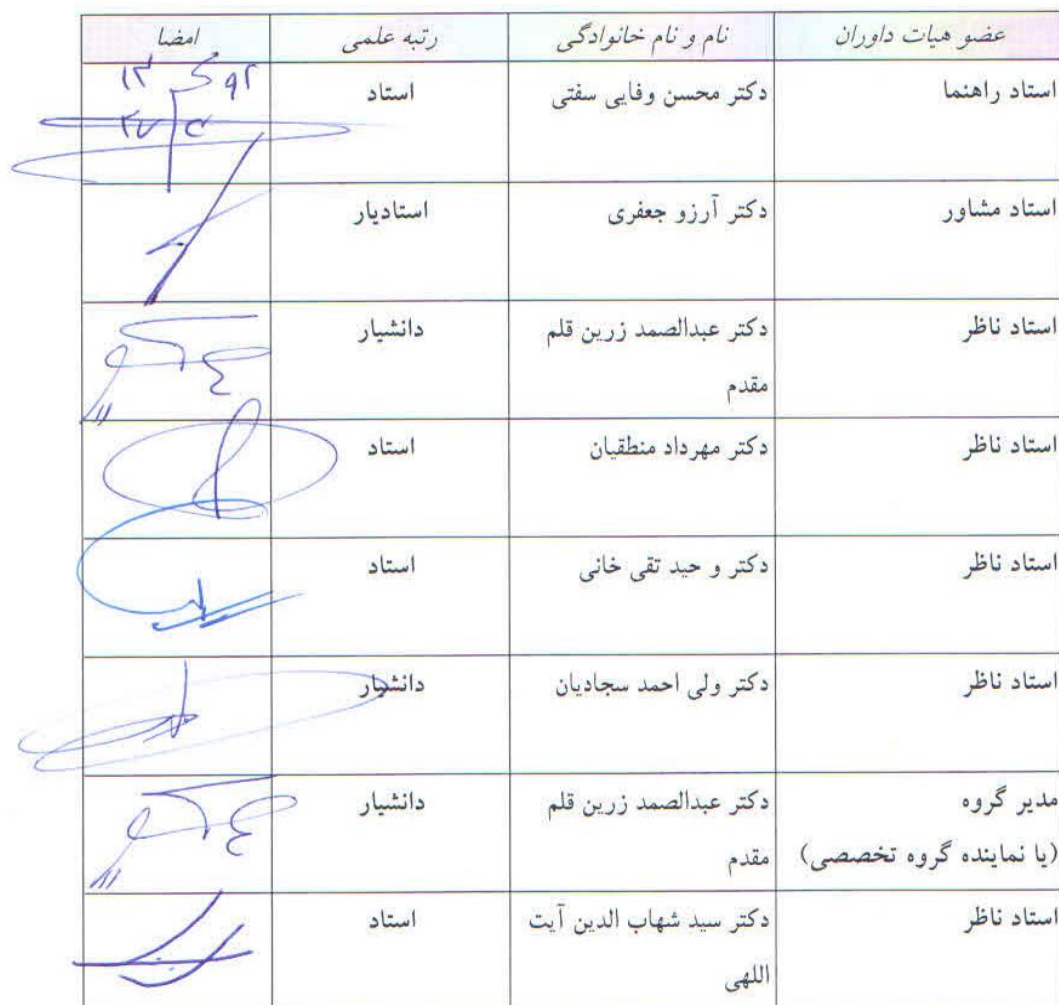 عضو هیات داوران نام و نام خانوادگی رتبه علمی امضا
استاد راهنما دکتر محسن وفایی سفتی استاد
استاد مشاور دکتر آرزو جعفری استادیار
استاد ناظر دکتر عبدالصمد زرین قلم دانشیار
مقدم
استاد ناظر دکتر مهرداد منطقیان استاد
استاد ناظر دکتر و حید تقی خانی استاد
استاد ناظر دکتر ولی احمد سجادیان دانشیار
مدیر گروه دکتر عبدالصمد زرین قلم دانشیار
(یا نماینده گروه تخصصی) مقدم
استاد ناظر دکتر سید شهاب الدین آیت استاد
اللهی